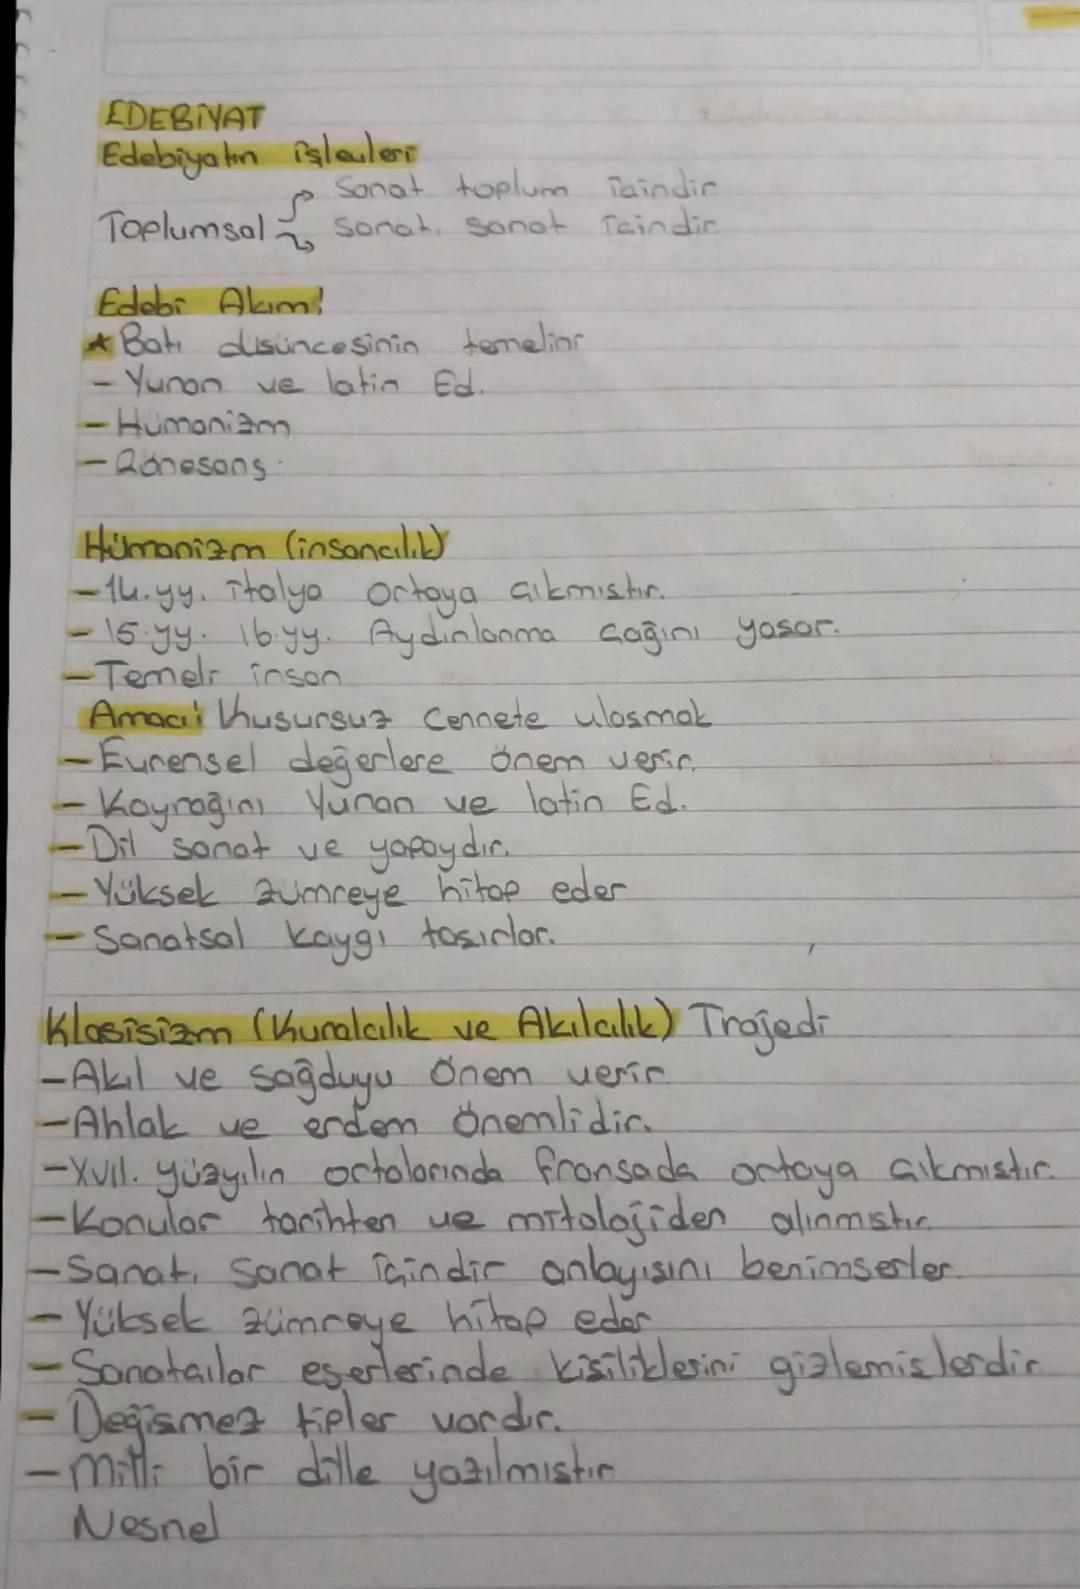 EDEBİYAT
Edebiyatın işlevleri
Sanat toplum içindir
Toplumsal
Sanat, sanat içindir
Edebi Akım!
★ Batı düşüncesinin temelini
- Yunan ve latin Ed.
- Hümanizm
- Rönesans.
Hümanizm (insancılık)
- 14.yy. italya ortaya çıkmıştır.
- 15.yy. 16.yy. Aydınlanma çağını yaşar.
- Temeli insan
Amacı: Kusursuz cennete ulaşmak
- Evrensel değerlere önem verir.
- Kaynağını Yunan ve latin Ed.
- Dil sanat ve yapaydır.
- Yüksek zümreye hitap eder
- Sanatsal kaygı taşırlar.
Klasisizm (Kuralcılık ve Akılcılık) Trajedi
- Akıl ve sağduyu önem verir
- Ahlak ve erdem önemlidir.
- XVII. yüzyılın ortalarında fransada ortaya çıkmıştır.
- Konular tarihten ve mitolojiden alınmıştır
- Sanat, sanat içindir anlayışını benimserler.
- Yüksek zümreye hitap eder
- Sanatçılar eserlerinde kişiliklerini gizlemişlerdir
- Değişmez tipler vardır.
- Milli bir dille yazılmıştır
Nesnel